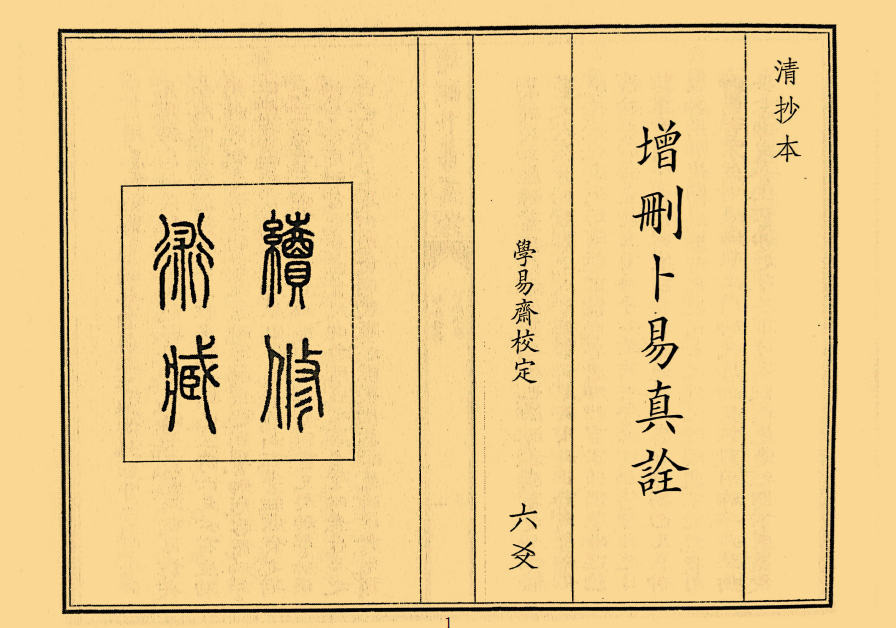 清抄本
增刪卜易真詮
學易齋校定
六爻
續修
術藏
1